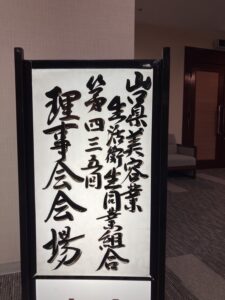 山口県美容業
生活衛生同業組合
第四三五回
理事会会場